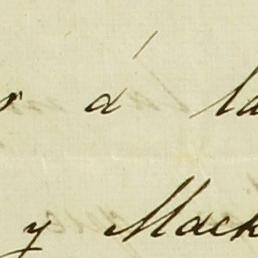 r á la
y Mack